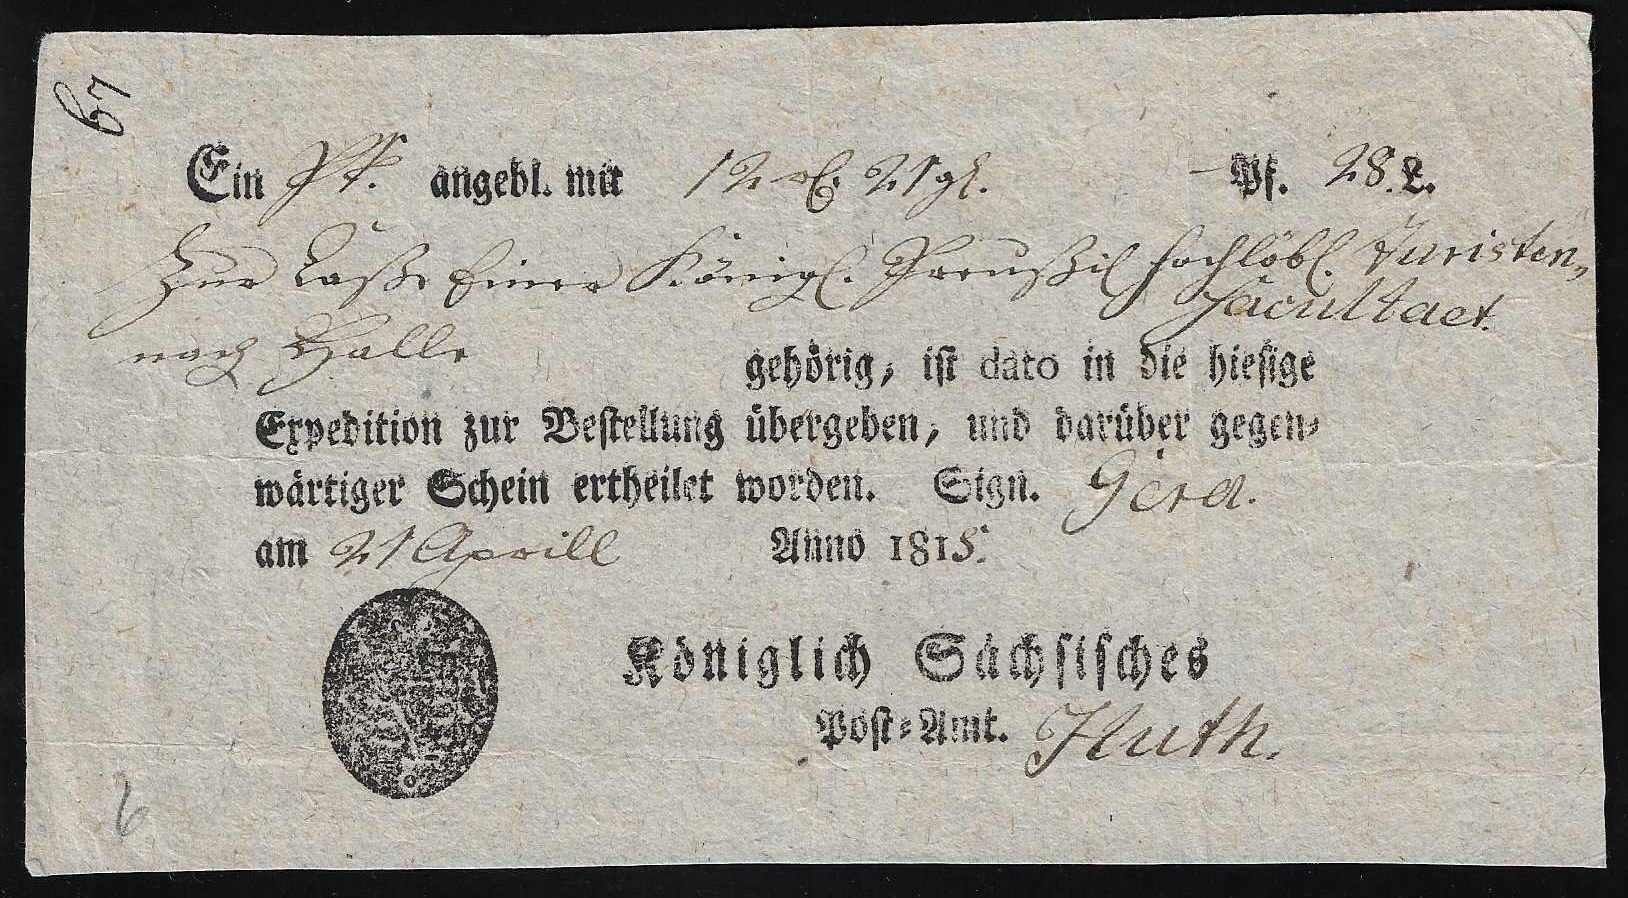 67
Ein Pk. angebl. mit 12 rℓ. 21 gℓ. – Pf. 28. L.
Zur Casse Einer Königl. Preußis hochlöbl. Juristen-
Facultaet.
nach Halle gehörig, ist dato in die hiesige
Expedition zur Bestellung übergeben, und darüber gegen-
wärtiger Schein ertheilet worden. Sign. Gera.
am 21 Aprill Anno 1815.
Königlich Sächsisches
Post-Amt. Huth.
6